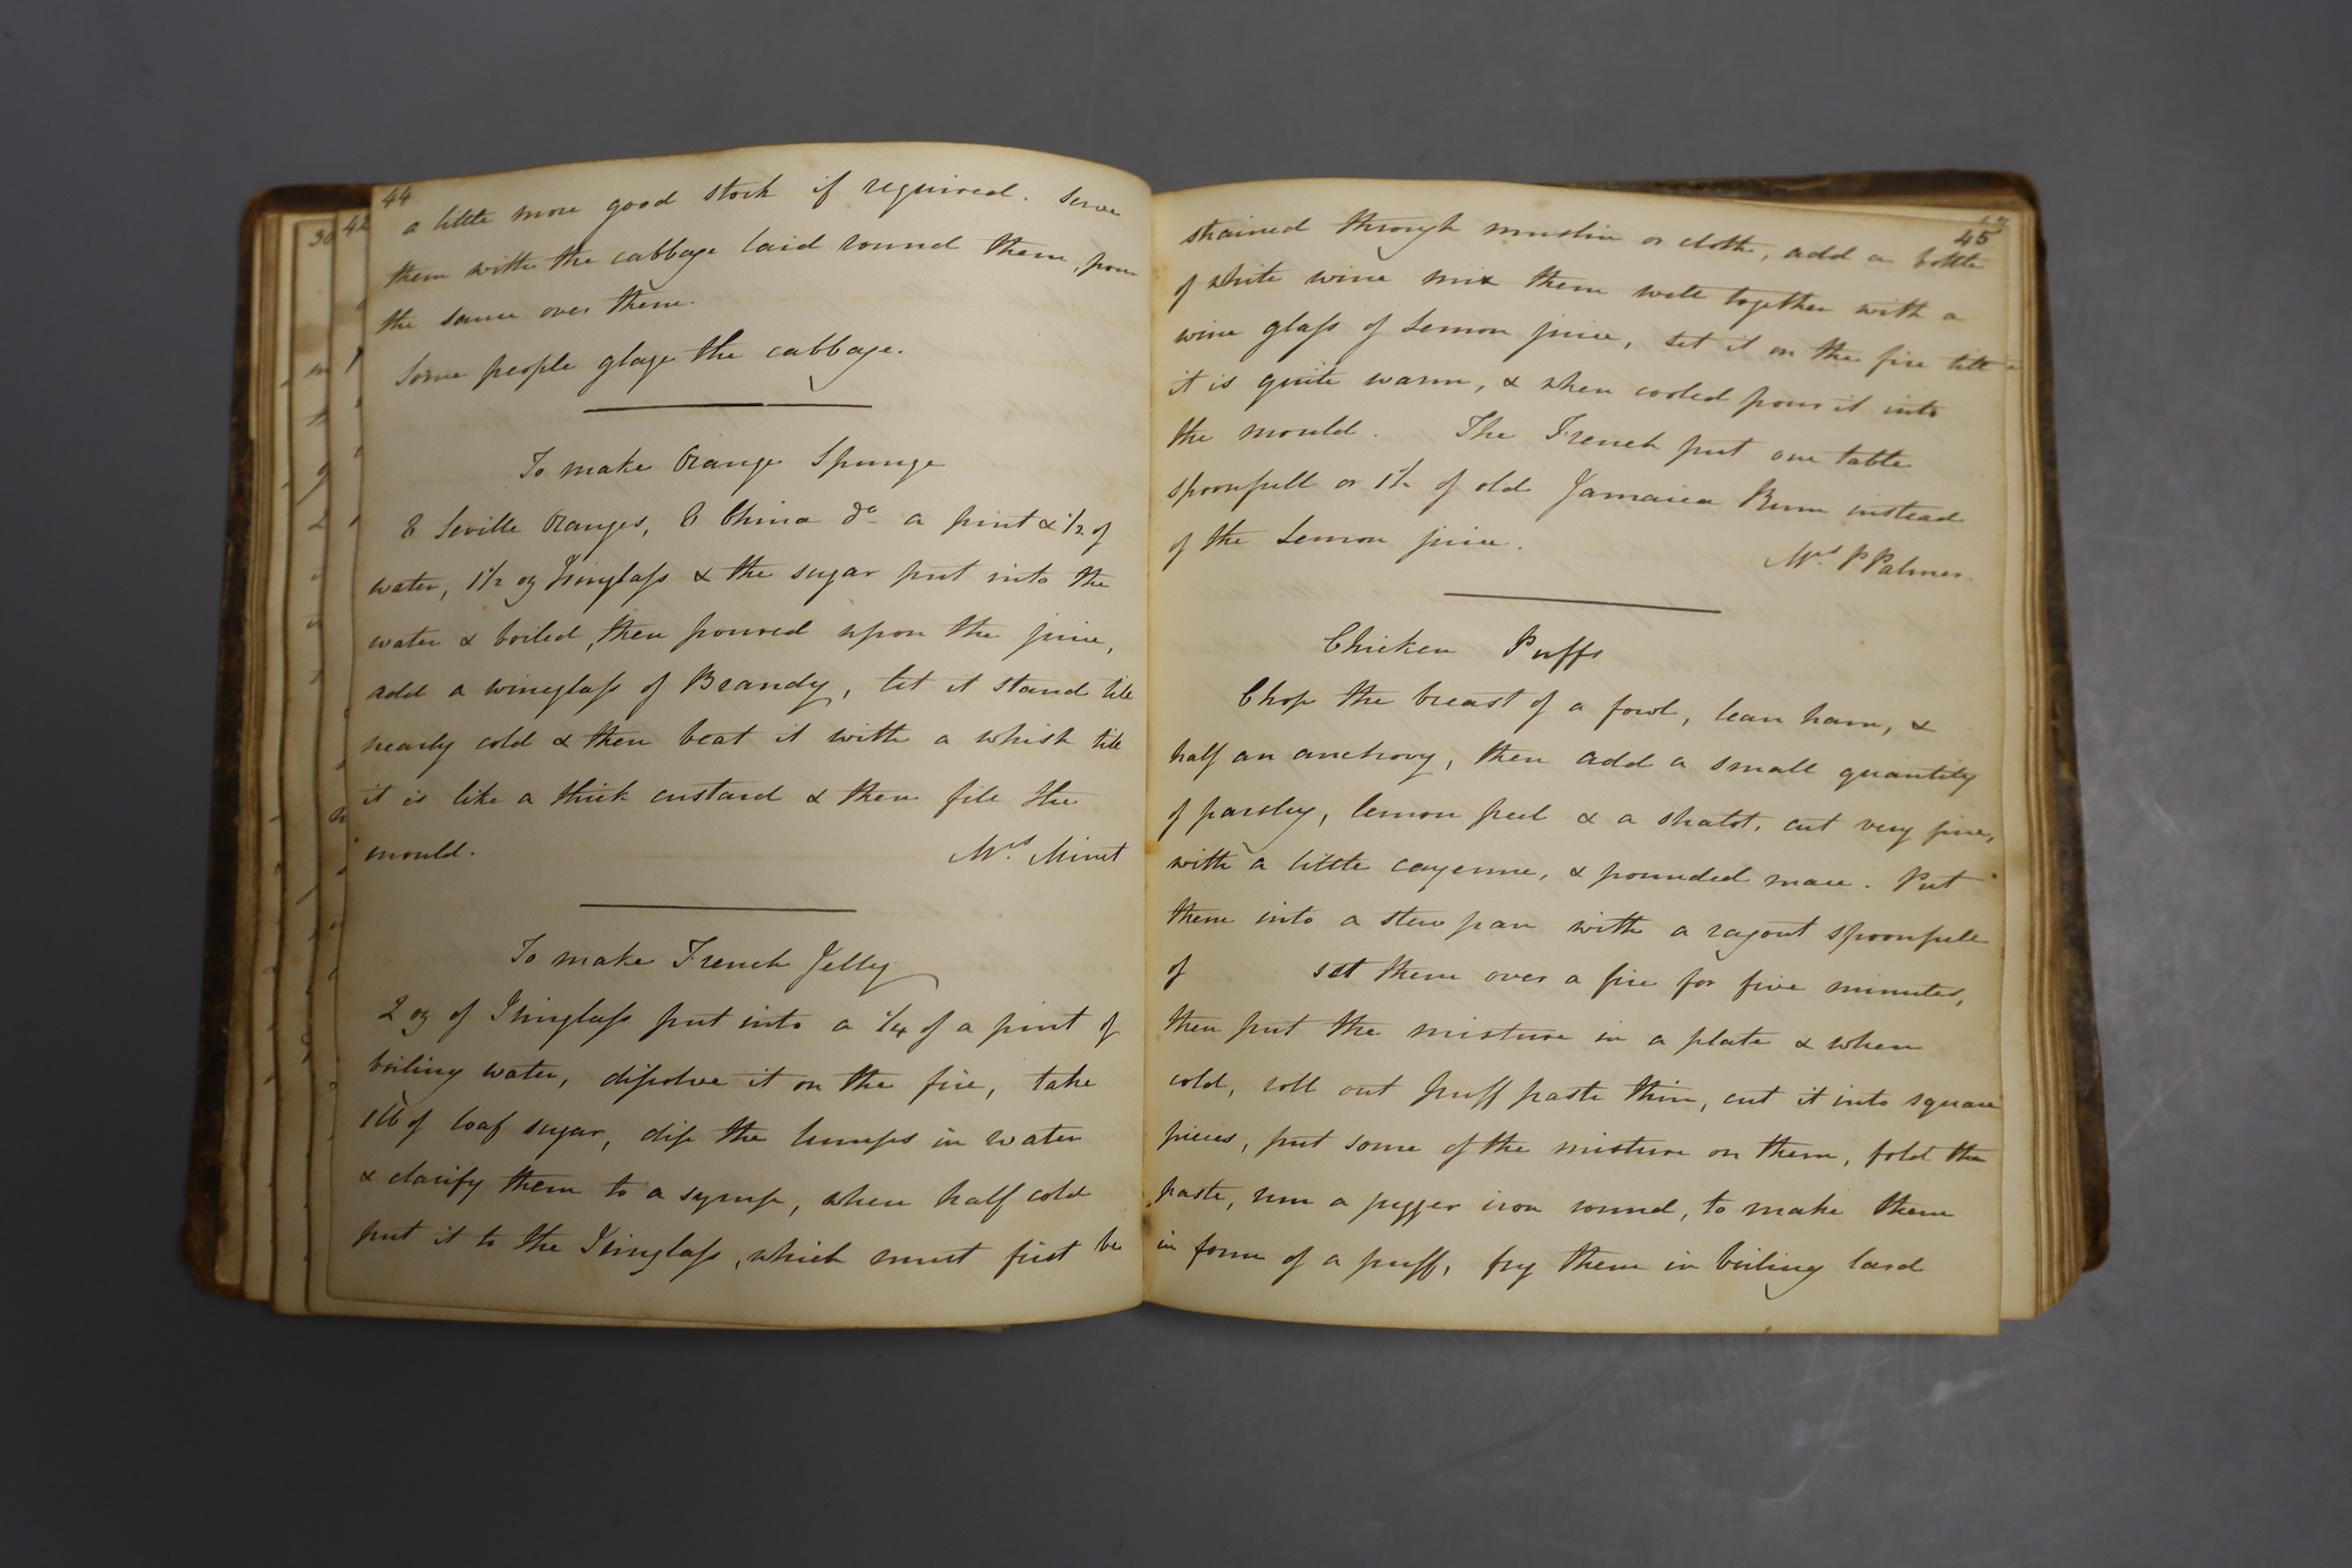 44
a little more good stock if required. Serve
them with the cabbage laid round them, pour
the sauce over them.
Some people glaze the cabbage.
To make Orange Spunge
8 Seville Oranges, 6 China do a pint & 1/2 of
water, 1 1/2 oz Isinglass & the sugar put into the
water & boiled, then poured upon the juice,
add a wineglass of Brandy, let it stand till
nearly cold & then beat it with a whisk till
it is like a thick custard & then fill the
mould.
Mrs. Minet
To make French Jelly
2 oz of Isinglass put into a 1/4 of a pint of
boiling water, dissolve it on the fire, take
1lb of loaf sugar, dip the lumps in water
& clarify them to a syrup, when half cold
put it to the Isinglass, which must first be
45
strained through muslin or cloth, add a bottle
of white wine mix them well together with a
wine glass of Lemon juice, set it on the fire till
it is quite warm, & when cooled pour it into
the mould. The French put one table
spoonfull or 1 1/2 of old Jamaica Rum instead
of the Lemon juice.
Mrs. P Palmer.
Chicken Puffs
Chop the breast of a fowl, lean ham, &
half an anchovy, then add a small quantity
of parsley, lemon peel & a shalot, cut very fine,
with a little cayenne, & pounded mace. Put
them into a stew pan with a ragout spoonfull
of set them over a fire for five minutes,
then put the misture in a plate & when
cold, roll out puff paste thin, cut it into square
pieces, put some of the misture on them, fold the
paste, run a jigger iron round, to make them
in form of a puff, fry them in boiling lard